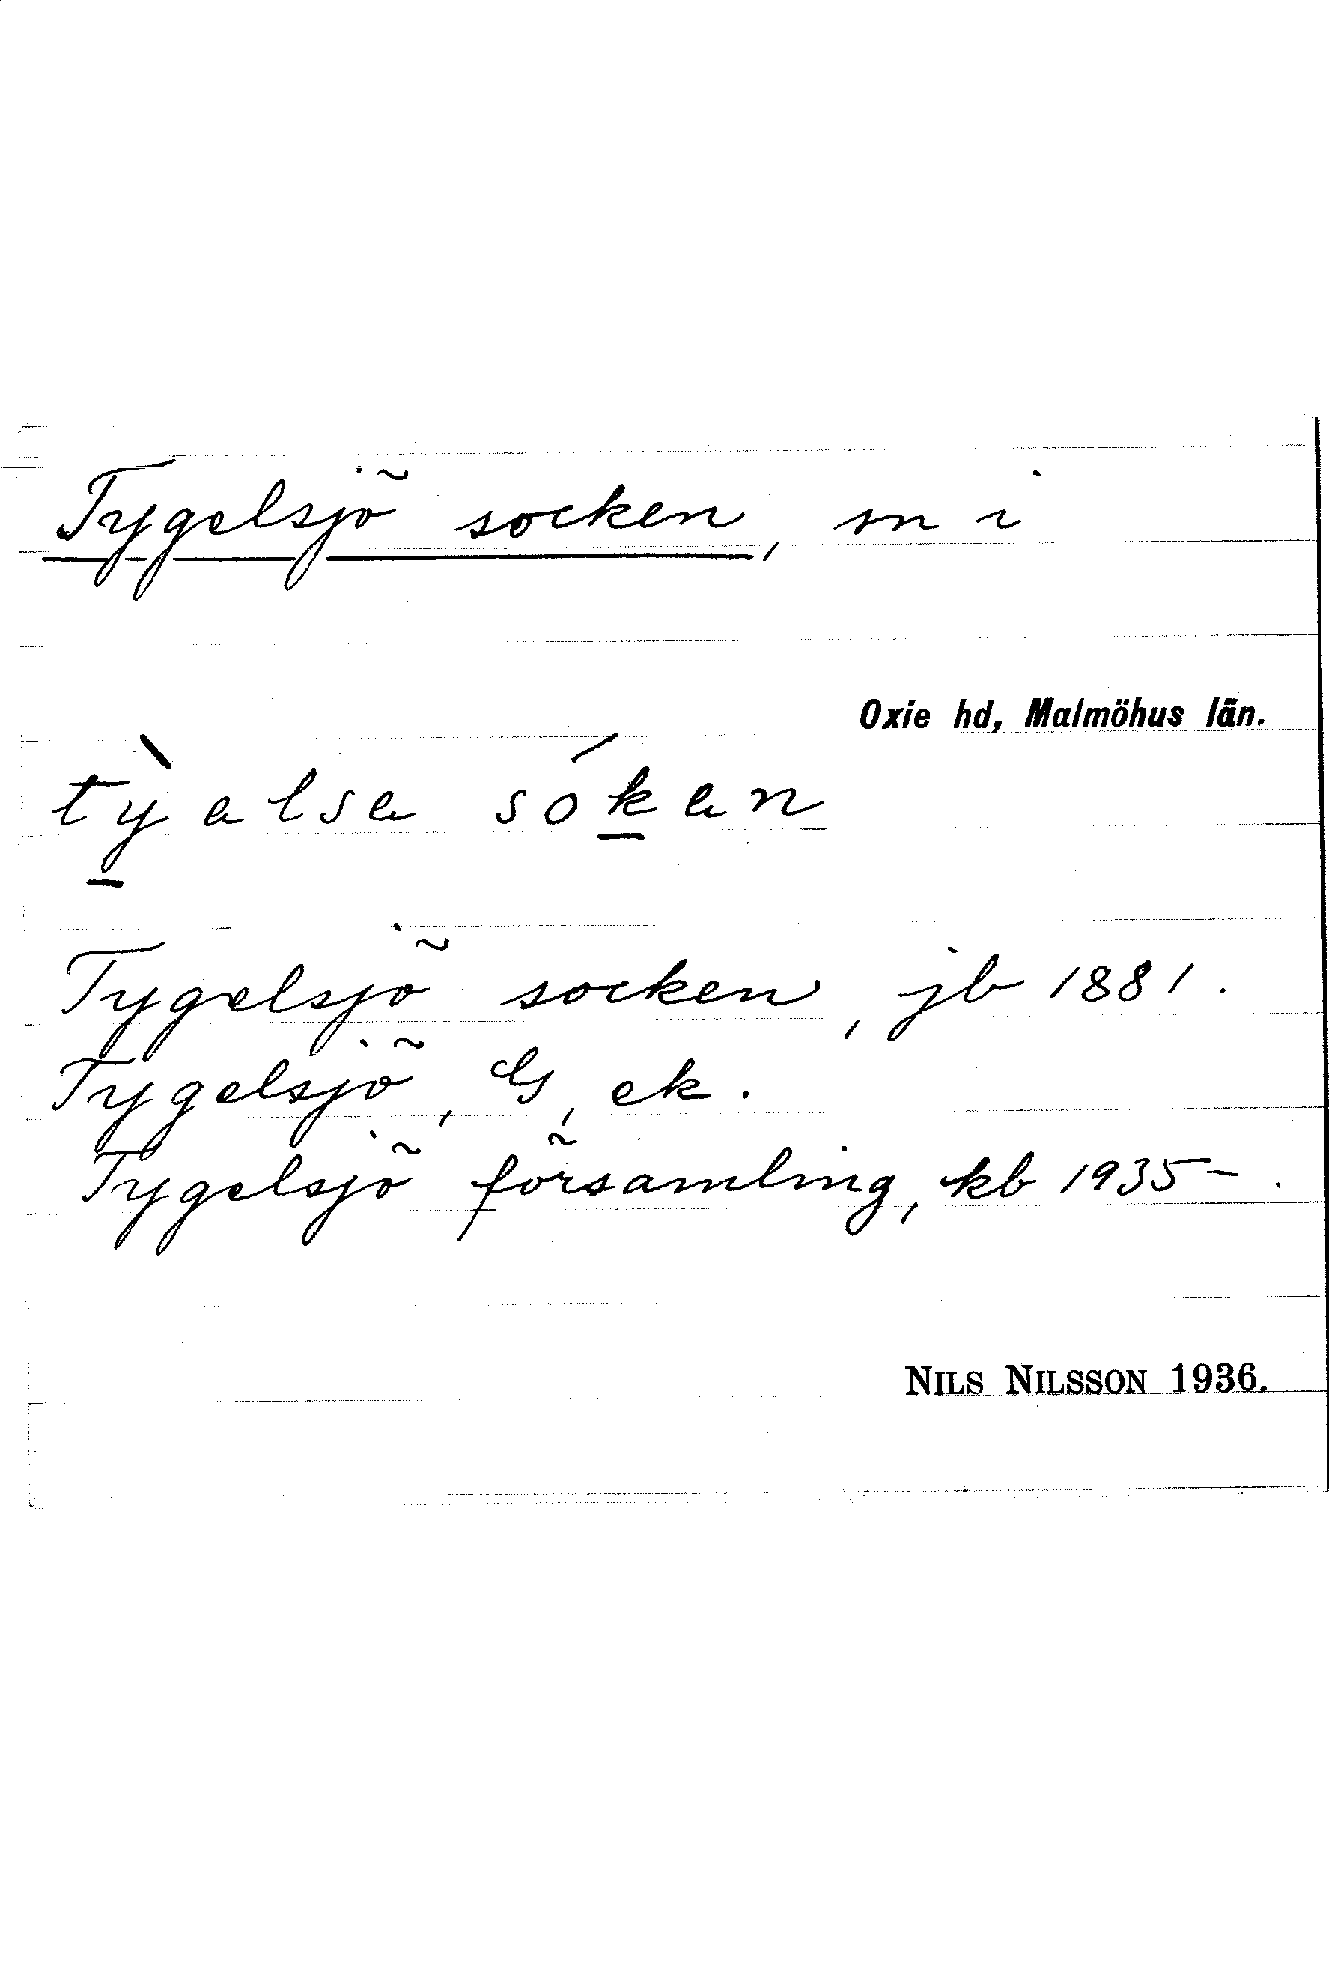 Tygelsjö socken, sn i
Oxie hd, Malmöhus län.
tỳalsa sókan
Tygelsjö socken, jb 1881.
Tygelsjö, G, ek.
Tygelsjö församling, kb 1935-.
NILS NILSSON 1936.